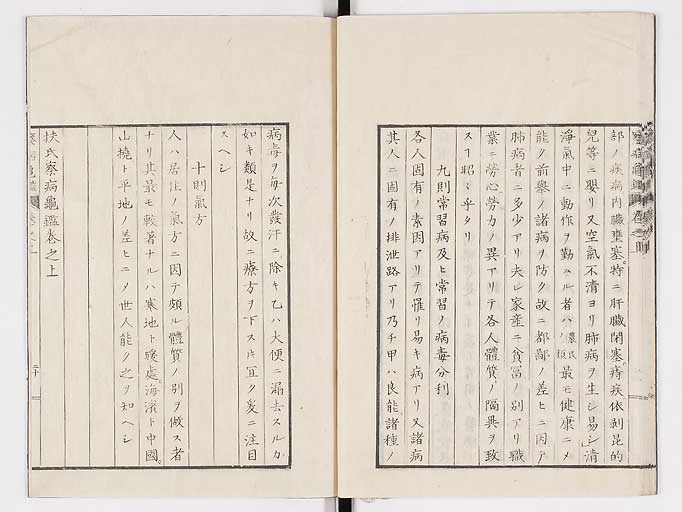 部ノ疾病内臓壅塞特ニ肝臓閉塞痔疾依剥昆的
兒等ニ嬰リ又空氣不清ヨリ肺病ヲ生シ易シ清
淨氣中ニ動作ヲ勤ムル者ハ農民ノ類最モ健康ニメ
能ク前擧ノ諸病ヲ防ク故ニ都鄙ノ差ヒニ因テ
肺病者ニ多少アリ夫レ家産ニ貧冨ノ別アリ職
業ニ勞心勞力ノ異アリテ各人體質ノ隔異ヲ致
ス㆒昭々乎タリ
九則常習病及ヒ常習ノ病毒分利
各人固有ノ素因アリテ罹リ易キ病アリ又諸病
其人ニ固有ノ排泄路アリ乃チ甲ハ良能諸種ノ
病毒ヲ毎次發汗ニ除キ乙ハ大便ニ漏去スルカ
如キ類是ナリ故ニ療方ヲ下スᅡキ宜ク爰ニ注目
スヘシ
十則氣方
人ハ居住ノ氣方ニ因テ頗ル體質ノ別ヲ做ス者
ナリ其最モ較著ナルハ寒地ト暖處海濱ト中國
山撓ト平地ノ差ヒニメ世人能ク之ヲ知ヘシ
扶氏察病龜鑑巻之上
二十